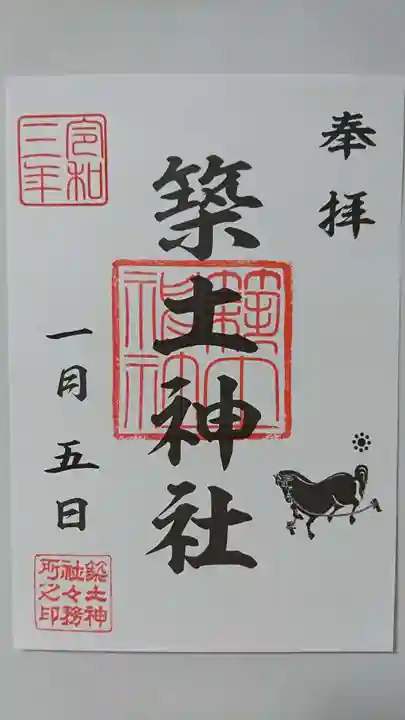 奉拝
築土神社
築土神社
令和
三年
一月五日
築土神
社々務
所之印